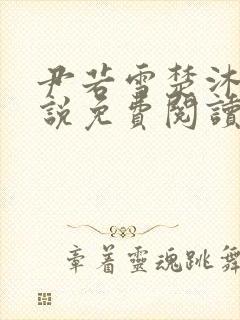 尹若雪楚沐
說免費閱讀
章着靈魂跳舞